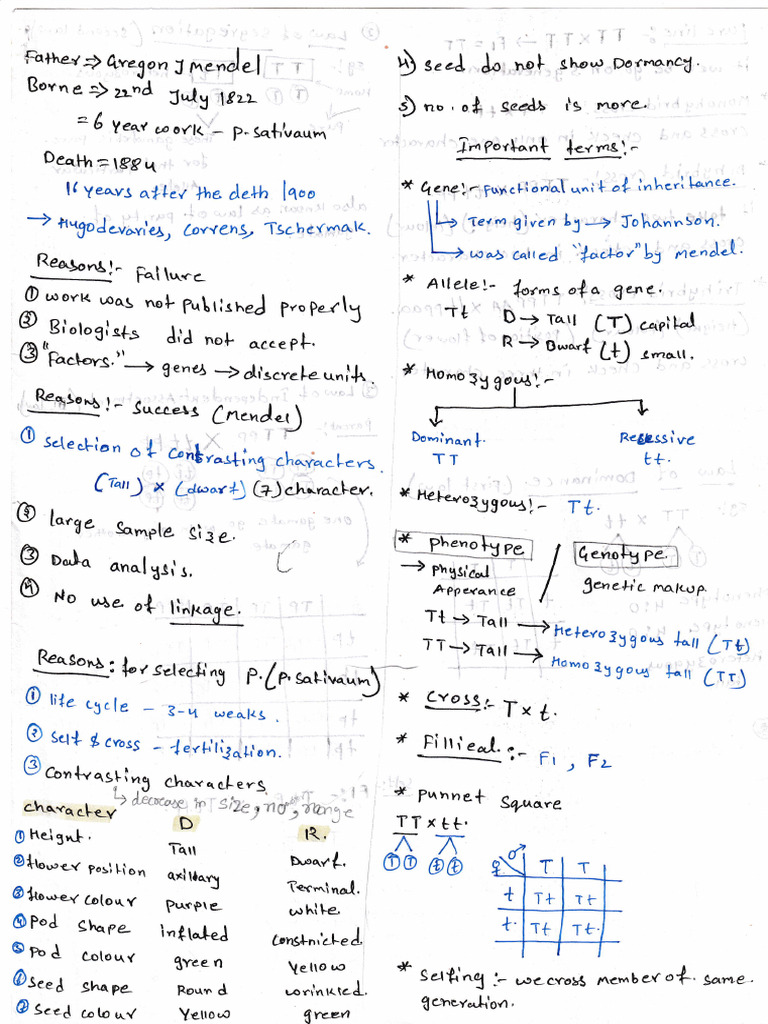 Father ⇒ Gregon J Mendel
Borne ⇒ 22nd July 1822
= 6 year work – P. sativaum
Death = 1884
16 years after the deth 1900
→ Hugodevaries, Correns, Tschermak.
Reasons!- Failure
① work was not published properly
② Biologists did not accept.
③ "Factors." → genes → discrete units.
Reasons!- Success (Mendel)
① selection of contrasting characters.
(Tall) × (dwarf) (7) character.
② large sample size.
③ Data analysis.
④ No use of linkage.
Reasons: for selecting P. (P. sativaum)
① life cycle – 3-4 weaks.
② self & cross – fertilization.
③ Contrasting characters
↳ decrease in size, no, range
character D R.
① Height. Tall Dwarf.
② flower position axillary Terminal.
③ flower colour purple white
④ Pod shape inflated constricted.
⑤ Pod colour green Yellow
⑥ Seed shape Round wrinkled.
⑦ Seed colour Yellow green
4) seed do not show Dormancy.
5) no. of seeds is more.
Important terms!-
* Gene!- Functional unit of inheritance.
→ Term given by → Johannson.
→ was called "factor" by mendel.
* Allele!- forms of a gene.
Tt D → Tall (T) capital
R → Dwarf (t) small.
* Homozygous!-
Dominant. Recessive
TT tt.
* Heterozygous!- Tt.
* Phenotype / Genotype.
→ Physical Apperance genetic makup.
Tt → Tall → Heterozygous tall (Tt)
TT → Tall → Homozygous tall (TT)
* Cross:- T × t.
* Fillieal:- F1, F2
* Punnet square
TT × tt.
T T t t
♀ ♂ T T
t Tt Tt
t. Tt Tt.
* Selfing :- we cross member of same
generation.